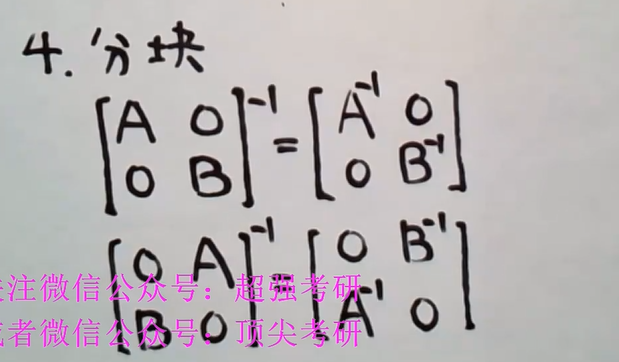 4. 分块
[A 0; 0 B]^-1 = [A^-1 0; 0 B^-1]
[0 A; B 0]^-1 = [0 B^-1; A^-1 0]
关注微信公众号：超强考研
或者微信公众号：顶尖考研